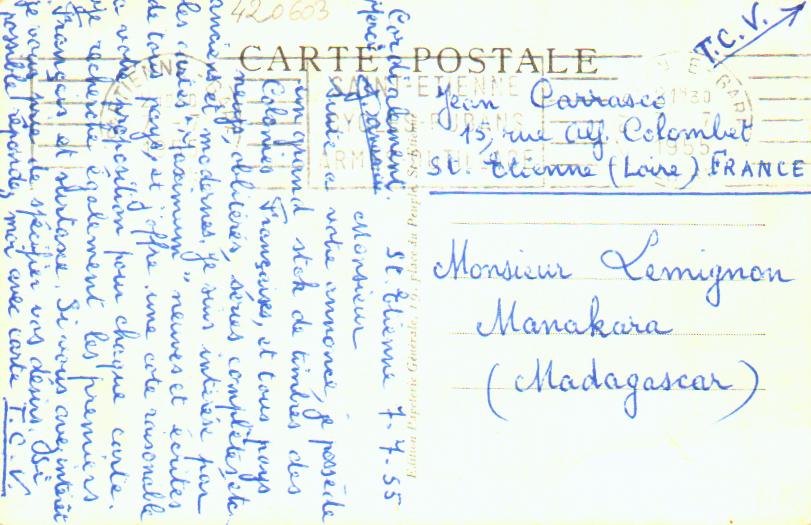 420603
CARTE POSTALE
T.C.V.
SAINT-ETIENNE
1955
Jean Carrasco
15, rue Alf. Colombet
St. Etienne (Loire) FRANCE
Monsieur Lemignon
Manakara
(Madagascar)
St. Etienne 7-7-55
Monsieur
Suite à votre annonce, je possède
un grand stok de timbres des
Colonies Françaises, et tous pays
neufs, oblitérés, séries complètes, etc.
anciens et modernes. Je suis intéréssé par
les cartes "maximum" neuves et écrites
de tous pays, et j'offre une cote raisonable
a votre proposition pour chaque carte.
je recherche également les premiers
Français et surtaxe. Si vous avez intérêt
je vous prie de spécifier vos désirs. Si
possible répondez moi avec carte T.C.V.
Merci
Cordialement.
Edition Papeterie Générale, 19, place du Peuple, St-Etienne